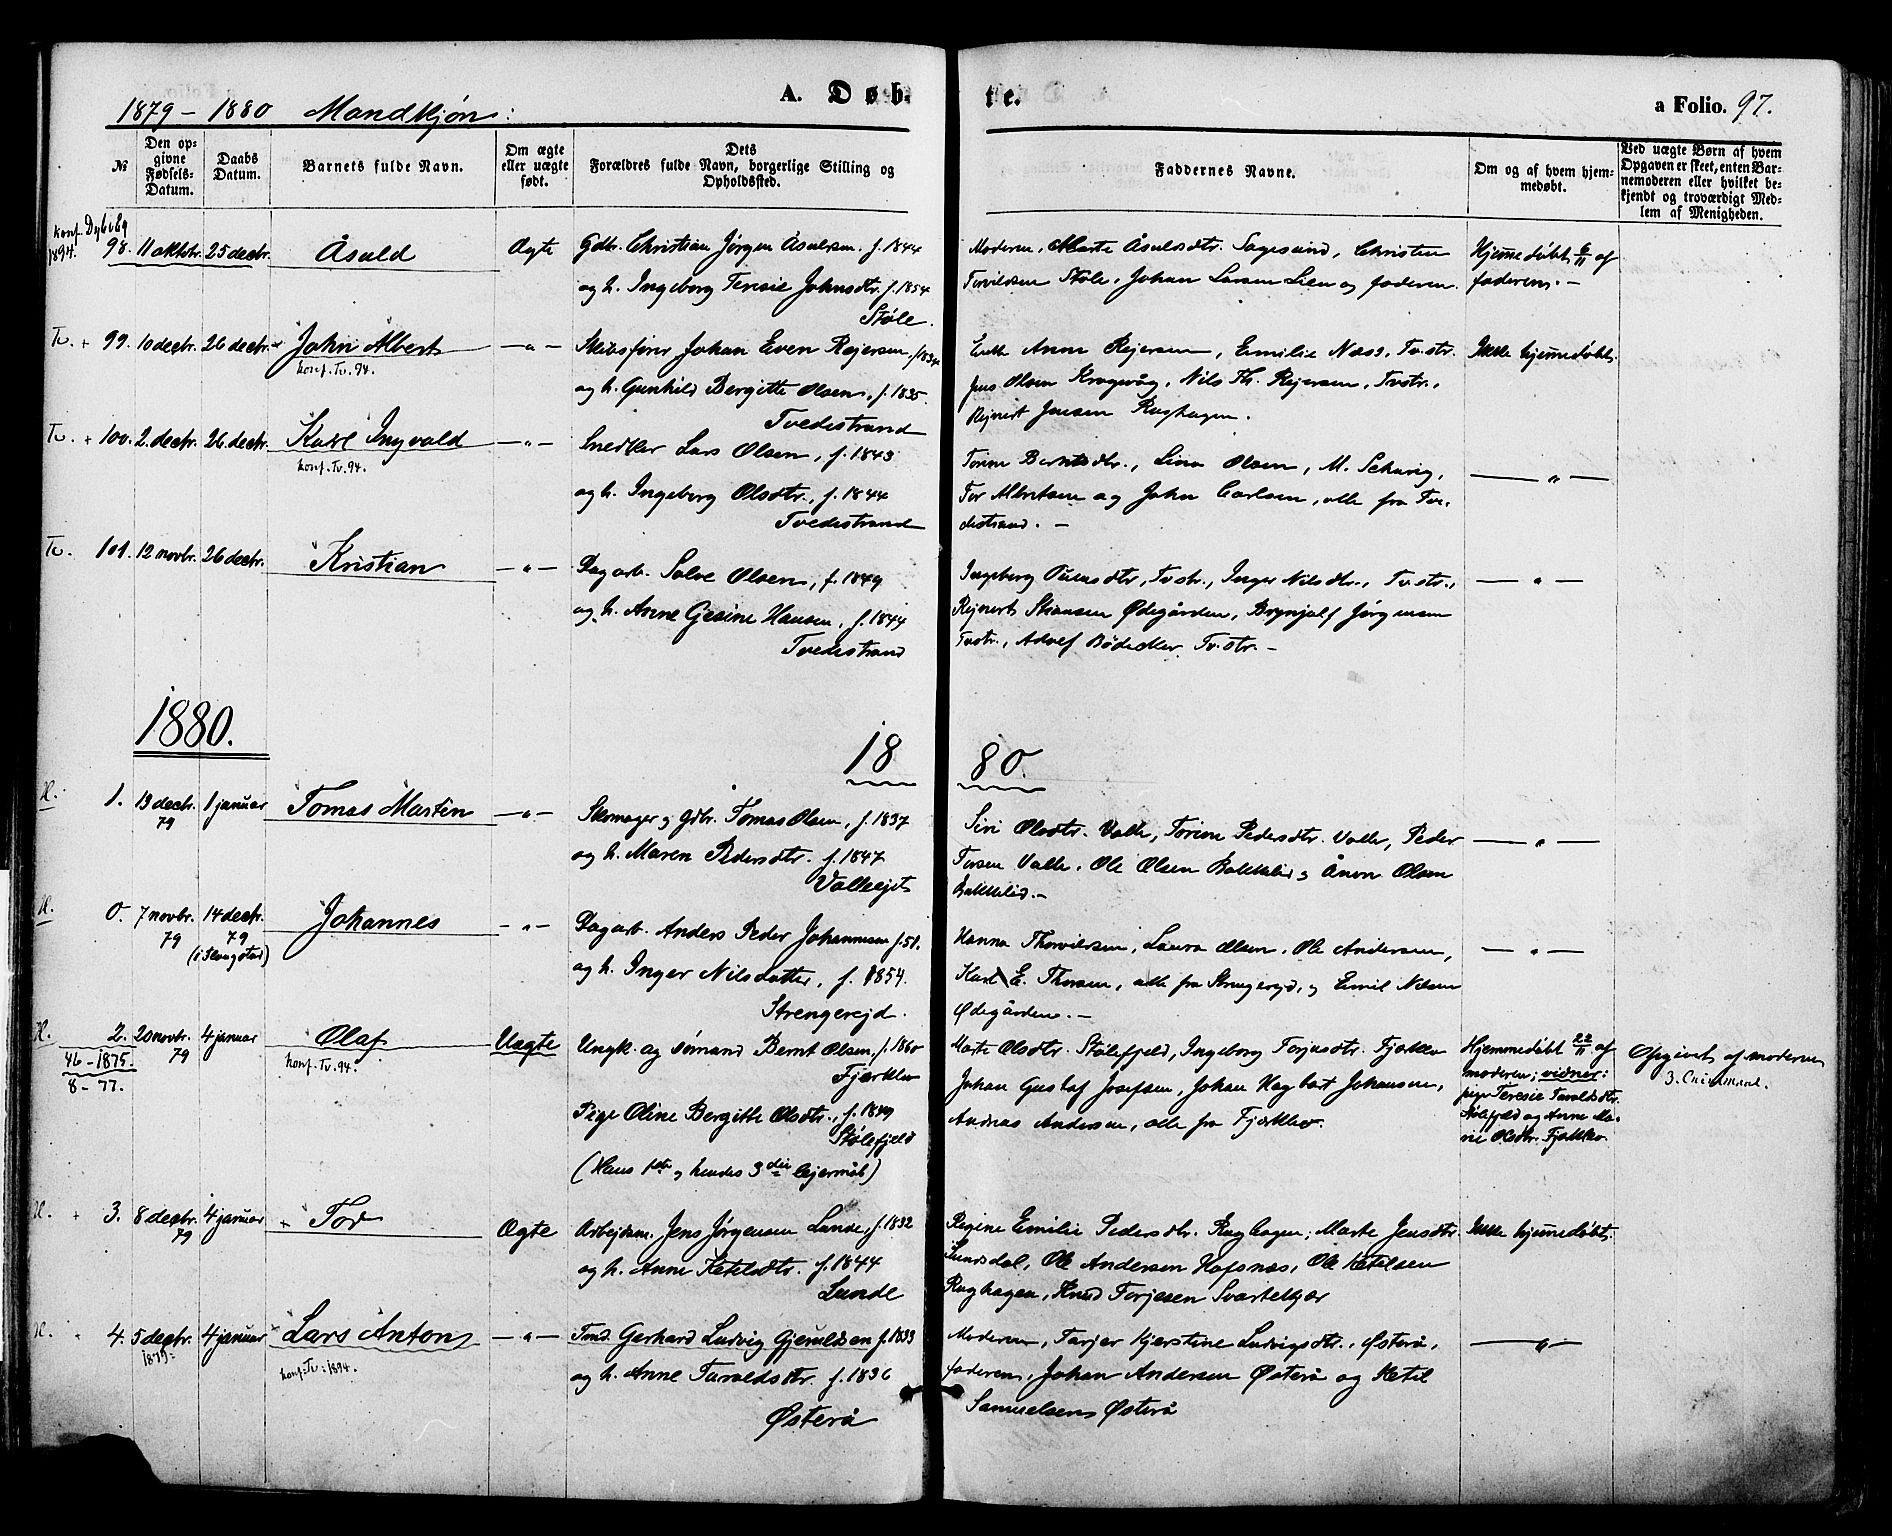 1879 – 1880 Mandkjøn:
A. Døb
te.
a Folio. 97.
№
Den opgivne Fødsels-Datum.
Daabs Datum.
Barnets fulde Navn.
Om ægte eller uægte født.
Dets Forældres fulde Navn, borgerlige Stilling og Opholdssted.
Faddernes Navne.
Om og af hvem hjemmedøbt.
Ved uægte Børn af hvem Opgaven er skeet, enten Barnemoderen eller hvilket bekjendt og troværdigt Medlem af Menigheden.
konf. Dybvåg
1894.
98. 11 oktobr. 25 decbr. Åsuld Ægte Gdbr. Christian Jørgen Åsulsen f. 1844
og h. Ingeborg Teresie Johnsdtr. f. 1854
Støle.
Moderen, Marte Åsulsdtr. Sagesund, Christen
Torvildsen Støle, Johan Larsen Lien og faderen.
Hjemmedøbt 6/11 af
faderen. –
Tv. + 99. 10 decbr. 26 decbr. John Albert –„– Skibsfører Johan Even Rejersen, f. 1834
konf. Tv. 94.
og h. Gunhild Bergitte Olsen, f. 1835.
Tvedestrand
Enke Anne Rejersen, Emilie Næss, Tv.str.
Jens Olsen Kragvåg, Nils Th. Rejersen, Tvstr.,
Rejnert Jensen Raghagen.
Ikke hjemmedøbt.
Tv. + 100. 2. decbr. 26. decbr. Karl Ingvald –„– Snedker Lars Olsen, f. 1843
konf. Tv. 94.
og h. Ingeborg Olsdtr., f. 1844
Tvedestrand
Torine Berntsdtr., Lina Olsen, M. Schavig,
Tor Albritsen og John Carlsen, alle fra Tve-
destrand. –
–„–
Tv. 101. 12 novbr. 26 decbr. Kristian –„– Dagarb. Salve Olsen, f. 1849
og h. Anne Gesine Hansen, f. 1844
Tvedestrand
Ingeborg Tv.str., Inger Nilsdtr., Tv.str.,
Rejnert Ødegården, Brynjulf Jørgensen
Tvstr., Adolf Bødekker Tv.str. –
–„–
1880.
18 80.
H. 1. 13 decbr. 1 januar Tomas Martin –„– Skomager og Gdbr. Tomas Olsen, f. 1837
79
og h. Maren Pedersdtr. f. 1847
Valleejet
Siri Olsdtr. Valle, Torine Pedersdtr. Valle, Peder
Torsen Valle, Ole Olsen Bakkelid og Ånon Olsen
Bakkelid. –
–„–
H. 0. 7 novbr. 14 decbr. Johannes –„– Dagarb. Anders Peder Johannesen f. 51.
79 79
og h. Inger Nilsdatter, f. 1854.
Strengerejd.
Hanna Thorvilsen, Laura Olsen, Ole Andersen,
Karl E. Thorsen, alle fra Strengerejd, og Emil Nilsen
Ødegården. –
–„–
H. 2. 20 novbr. 4 januar Olaf Uægte Ungk. og sømand Bernt Olsen, f. 1860
79
46 – 1875.
8 – 77.
konf. Tv. 94.
Fjærklev
Pige Oline Bergitte Olsdtr., f. 1849
Stølefjeld
(Hans 1ste og hendes 3die lejermål)
Marte Olsdtr. Stølefjeld, Ingeborg Torjusdtr. Fjærklev
Johan Gustaf Josefsen, Johan Hagbart Johansen,
Andreas Andersen, alle fra Fjærklev.
Hjemmedøbt 22/11 af
moderen; vidner:
pige Teresie Taraldsdtr.
Stølefjeld og Anne Ma-
rie Olsdtr. Fjærklev.
Opgivet af moderen
H. + 3. 8 decbr. 4 januar Tor Ægte Arbejdsm. Jens Jørgensen Lunde, f. 1832
79
og h. Anne Ketelsdtr. f. 1844
Lunde
Regine Emilie Pedersdtr. Raghagen, Marte Jensdtr.
Sundsdal, Ole Andersen Hafsnæs, Ole Ketilsen
Raghagen, Knud Torjesen Svartekjær
Ikke hjemmedøbt.
H. 4. 5 decbr. 4 januar Lars Anton –„– Tmd. Gerhard Ludvig Gjeruldsen f. 1833
1879.
konf. Tv. 1894.
og h. Anne Taraldsdtr. f. 1836
Østerå
Moderen, Tarjer Kjerstine Ludvigsdtr., Østerå,
faderen, Johan Andersen Østerå og Ketil
Samuelsen Østerå
–„–